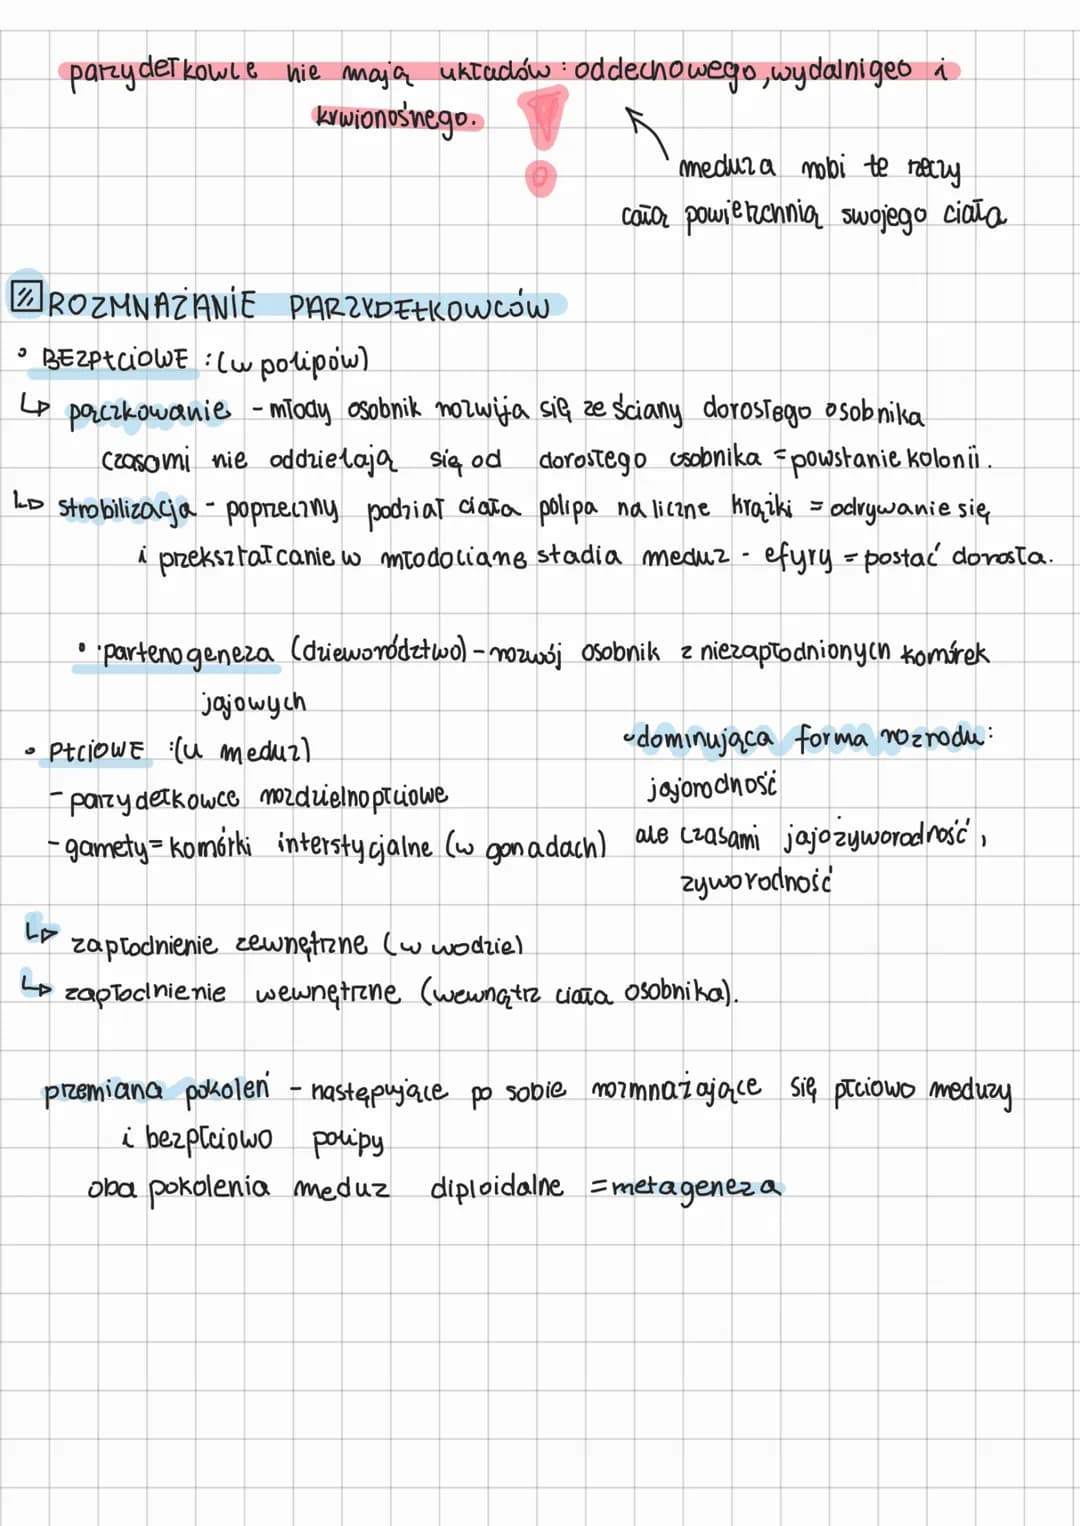 parzydełkowce nie mają układów: oddechowego, wydalnigeo i
krwionośnego.
meduza robi te rzeczy
całą powierzchnią swojego ciała
ROZMNAŻANIE PARZYDEŁKOWCÓW
• BEZPŁCIOWE : (w polipów)
↳ pączkowanie - młody osobnik rozwija się ze ściany dorosłego osobnika
czasami nie oddzielają się od dorosłego osobnika = powstanie kolonii.
↳ strobilizacja - poprzeczny podział ciała polipa na liczne krążki = odrywanie się
i przekształcanie w młodociane stadia meduz - efyry = postać dorosła.
• partenogeneza (dzieworództwo) - rozwój osobnik z niezapłodnionych komórek
jajowych
• PŁCIOWE : (u meduz)
- parzydełkowce rozdzielnopłciowe
- gamety = komórki interstycjalne (w gonadach)
dominująca forma rozrodu:
jajorodność
ale czasami jajożyworodność,
żyworodność
↳ zapłodnienie zewnętrzne (w wodzie)
↳ zapłodnienie wewnętrzne (wewnątrz ciała osobnika).
przemiana pokoleń - następujące po sobie rozmnażające się płciowo meduzy
i bezpłciowo polipy
oba pokolenia meduz diploidalne = metageneza